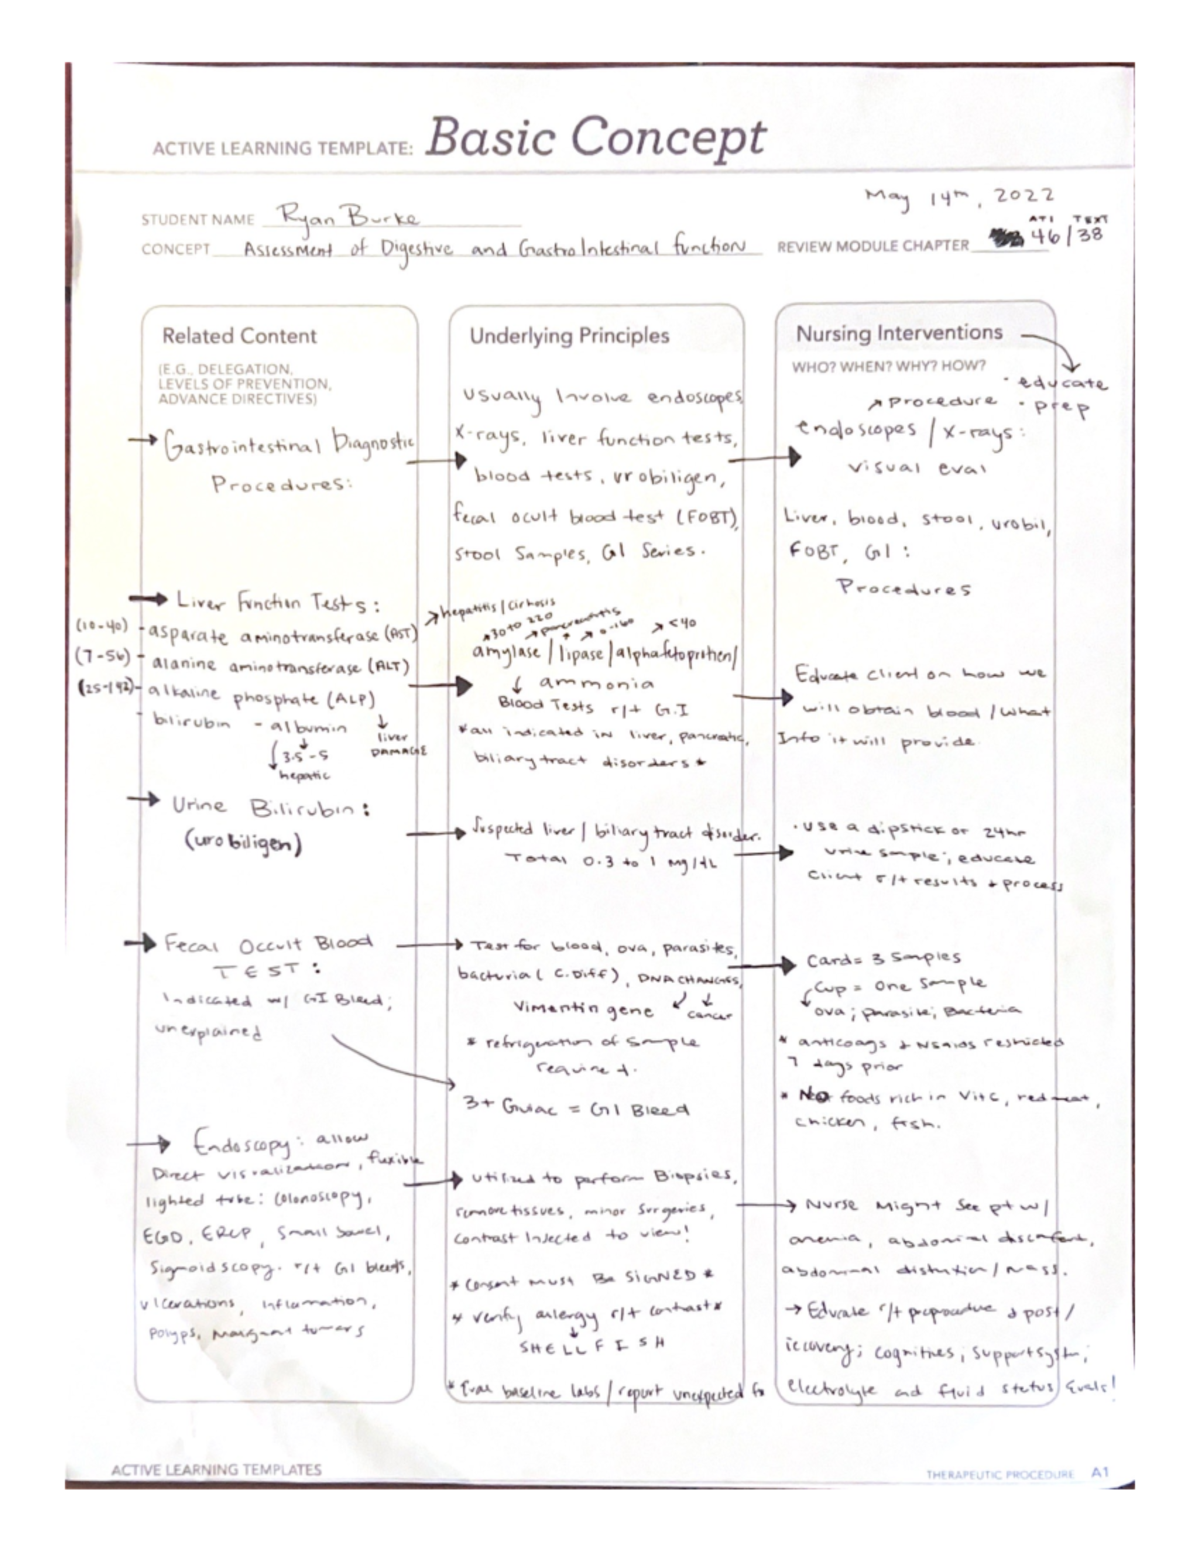 ACTIVE LEARNING TEMPLATE: Basic Concept
May 14th, 2022
STUDENT NAME Ryan Burke
ATI TEXT
CONCEPT Assessment of Digestive and GastroIntestinal function REVIEW MODULE CHAPTER 46/38
Related Content
(E.G., DELEGATION,
LEVELS OF PREVENTION,
ADVANCE DIRECTIVES)
→ Gastrointestinal Diagnostic
Procedures:
→ Liver Function Tests:
(10-40) - asparate aminotransferase (AST)
(7-56) - alanine aminotransferase (ALT)
(25-142) - alkaline phosphate (ALP)
- bilirubin - albumin ↓ liver DAMAGE
3.5-5
hepatic
→ Urine Bilirubin:
(urobiligen)
→ Fecal Occult Blood
TEST:
Indicated w/ GI Bleed;
unexplained
→ Endoscopy: allow
Direct visualization, flexible
lighted tube: Colonoscopy,
EGD, ERCP, Small bowel,
Sigmoidscopy. r/t GI bleeds,
ulcerations, inflamation,
Polyps, malignant tumors
Underlying Principles
Usually Involve endoscopes,
X-rays, liver function tests,
blood tests, urobiligen,
fecal occult blood test (FOBT),
Stool Samples, GI Series.
↗ hepatitis/Cirhosis
↗ 30 to 220 ↗ pancreatitis ↑ ↗ 0-160 ↗ <40
amylase/lipase/alphafetoprotien/
↓ ammonia
Blood Tests r/t G.I
*all indicated in liver, pancreatic,
biliary tract disorders*
Suspected liver/biliary tract disorder.
Total 0.3 to 1 mg/dL
Test for blood, ova, parasites,
bacturia (C.Diff), DNA CHANGES,
Vimentin gene ↙ ↓ cancer
* refrigeration of sample
required.
3+ Guiac = GI Bleed
utilized to perform Biopsies,
remove tissues, minor surgeries,
Contrast Injected to view!
* Consent must Be SIGNED *
* verify allergy r/t contrast *
↓
SHELLFISH
* Eval baseline labs/report unexpected
Nursing Interventions
WHO? WHEN? WHY? HOW?
· educate
↗ Procedure · prep
endoscopes / X-rays:
visual eval
Liver, blood, stool, urobil,
FOBT, GI:
Procedures
Educate Client on how we
will obtain blood/what
Info it will provide.
· Use a dipstick or 24hr
urine sample; educate
Client r/t results + process
Card = 3 Samples
Cup = One Sample
ova; parasite; Bacteria
* anticoags + NSAIDs restricted
7 days prior
* NO foods rich in Vit C, red meat,
chicken, fish.
Nurse Might See pt w/
anemia, abdominal discomfort,
abdominal distention/mass.
→ Educate r/t preprocedure + post/
recovery; cognitives; support syst.;
electrolyte and fluid status Evals!
ACTIVE LEARNING TEMPLATES
THERAPEUTIC PROCEDURE A1